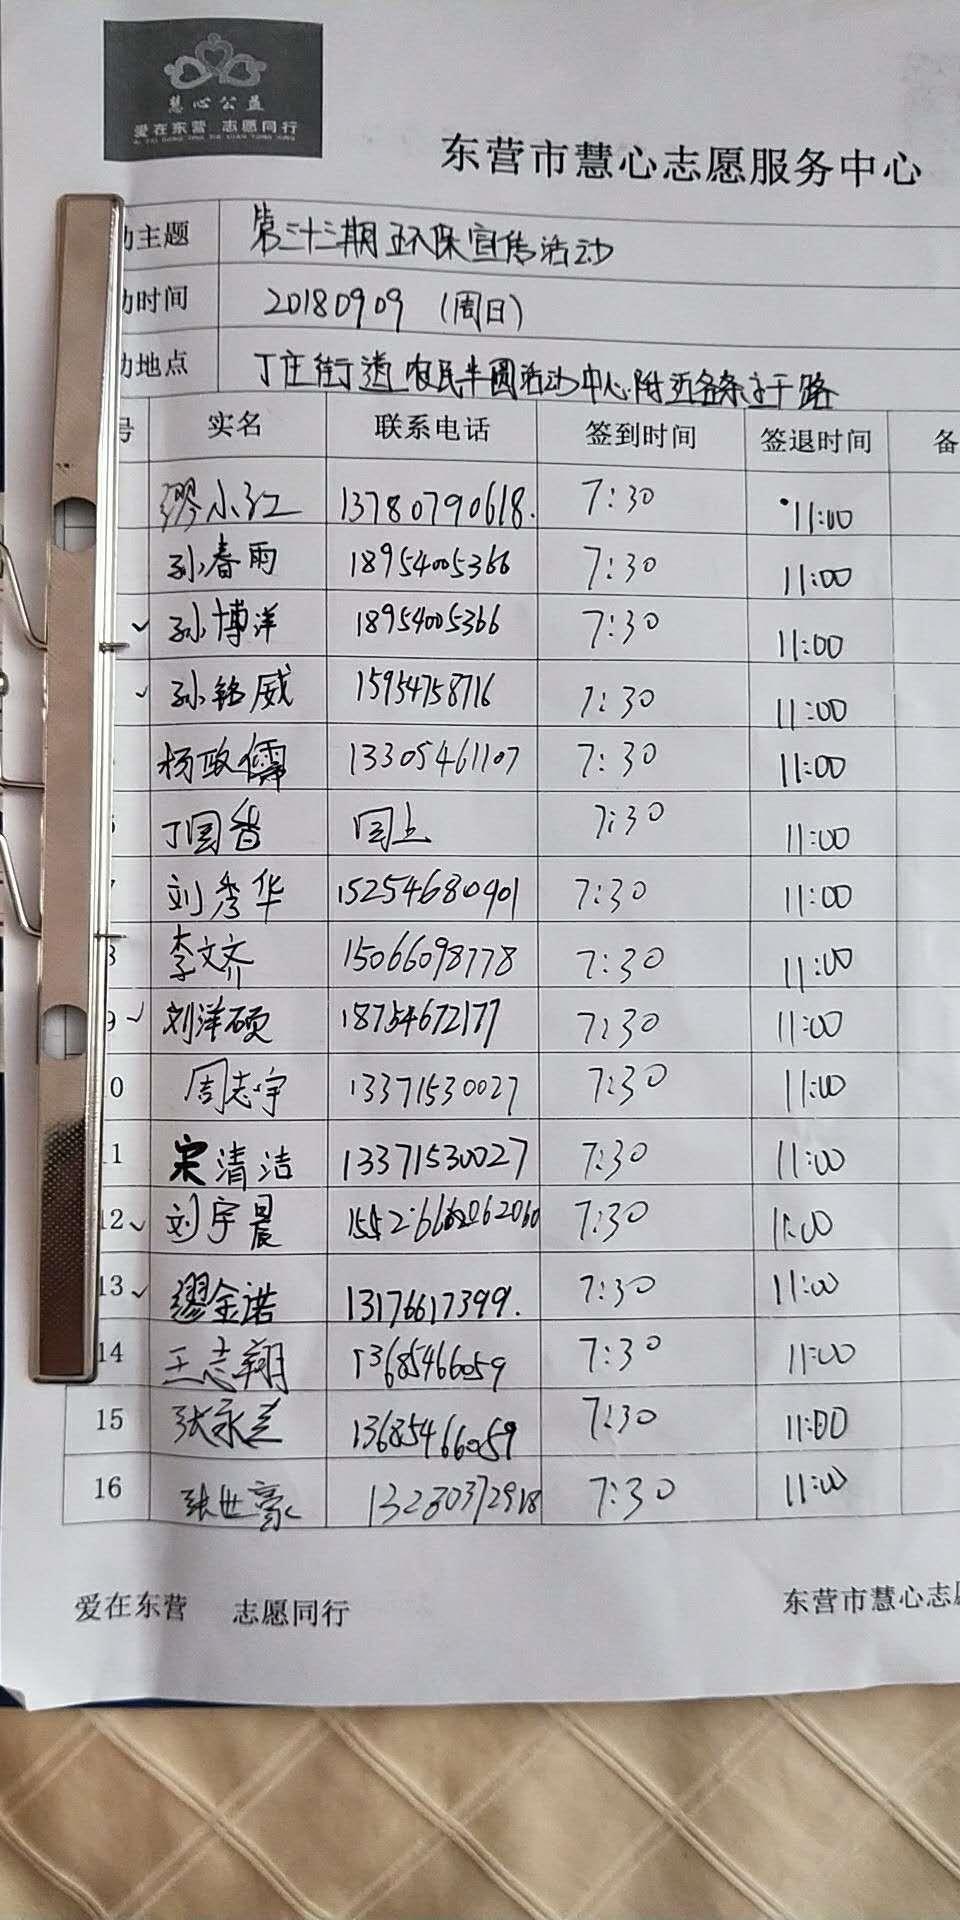 慧心公益
爱在东营 志愿同行
东营市慧心志愿服务中心
动主题 第三十三期环保宣传活动
动时间 20180909 (周日)
动地点 丁庄街道农民半圆活动中心附近各条主干路
号 实名 联系电话 签到时间 签退时间 备
缪小红 13780790618. 7:30 11:00
孙春雨 18954005366 7:30 11:00
✓ 孙博洋 18954005366 7:30 11:00
✓ 孙铭威 15954758716 7:30 11:00
杨政儒 13305461107 7:30 11:00
丁国智 同上 7:30 11:00
7 刘秀华 15254680901 7:30 11:00
8 李文齐 15066098778 7:30 11:00
9 ✓ 刘洋硕 18754672177 7:30 11:00
10 周志宇 13371530027 7:30 11:00
11 宋清洁 13371530027 7:30 11:00
12 ✓ 刘宇晨 7:30 11:00
13 ✓ 缪金诺 13176617399. 7:30 11:00
14 王志翔 13685466059 7:30 11:00
15 张永兰 13685466059 7:30 11:00
16 张世豪 13280372918 7:30 11:00
爱在东营 志愿同行 东营市慧心志